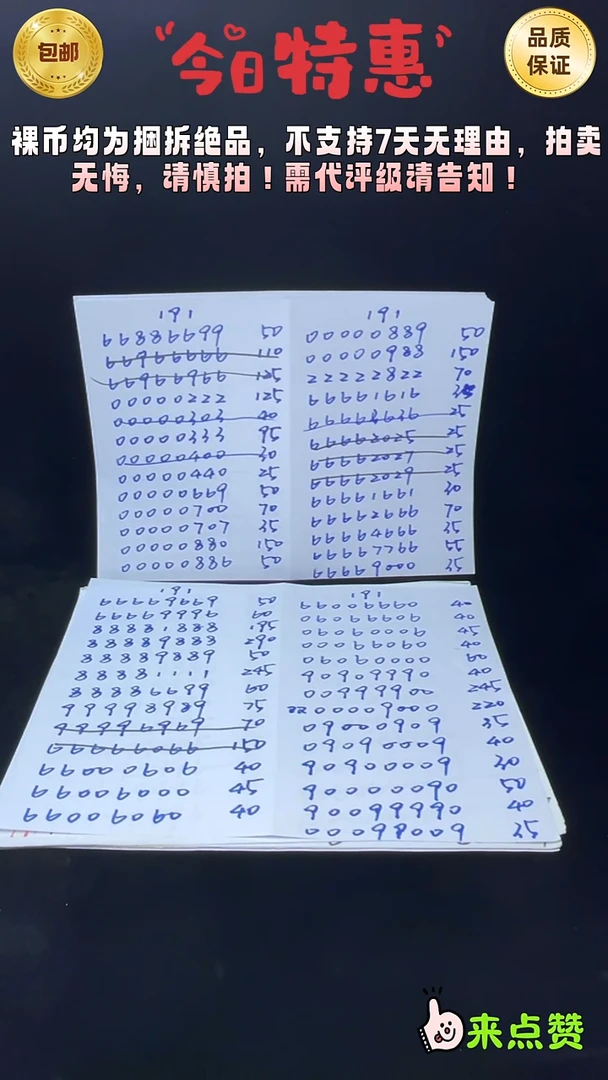 包邮
今日特惠
品质
保证
裸币均为捆拆绝品，不支持7天无理由，拍卖
无悔，请慎拍！需代评级请告知！
191
66886699 50
66966666 110
66966966 125
00000222 125
00000303 40
00000333 95
00000400 30
00000440 25
00000669 50
00000700 70
00000707 35
00000880 150
00000886 50
191
00000889 50
00000983 150
22222822 70
66661616
66668636 25
66662025 25
66662027 25
66662029 25
66661661 30
66662666 70
66664666 35
66667766 55
66669000 35
191
66669669 50
66669996 60
88881888 195
88889883 290
88889889 50
88881111 245
88886699 60
99998989 75
99996969 70
66666066 150
66000606 40
66006000 45
66006060 40
191
66006660 40
06066606 40
06060006 45
00066060 40
06060000 60
90909990 40
00999900 245
00009000 220
09000909 35
09090009 40
90900009 30
90000090 50
90099990 40
00098009 35
来点赞